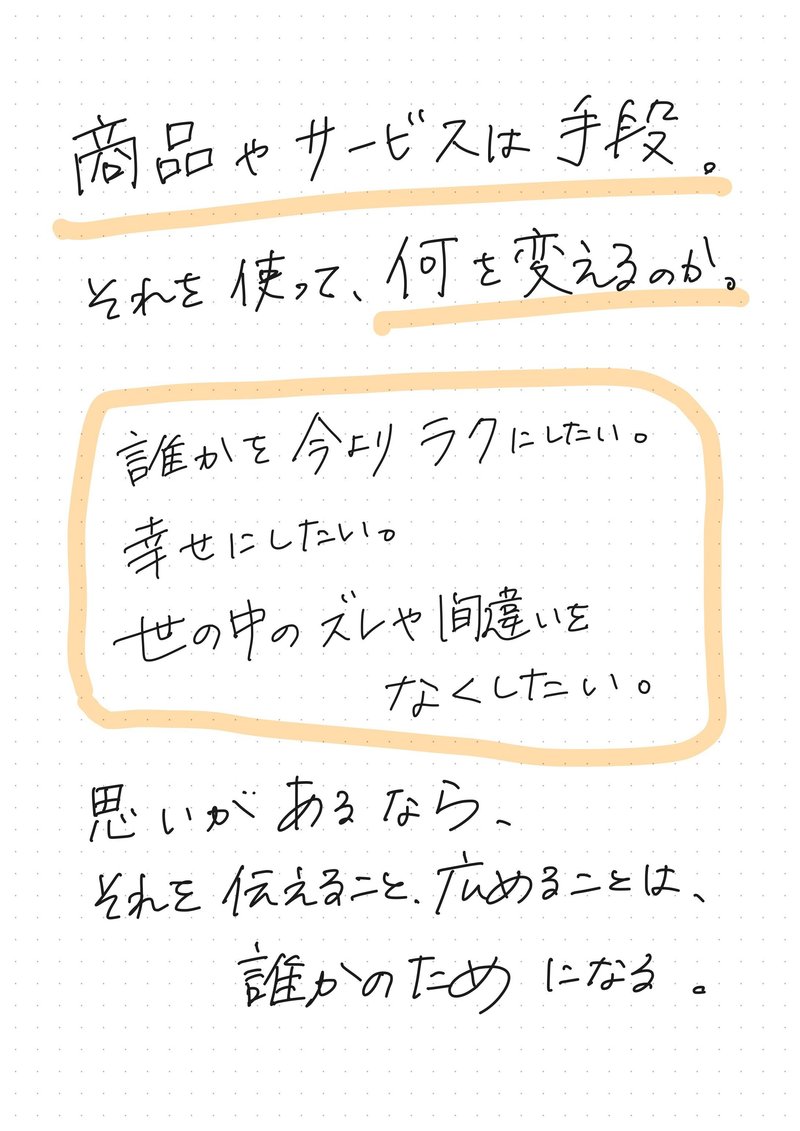 商品やサービスは手段。
それを使って、何を変えるのか。
誰かを今よりラクにしたい。
幸せにしたい。
世の中のズレや間違いを
なくしたい。
思いがあるなら、
それを伝えること、広めることは、
誰かのためになる。